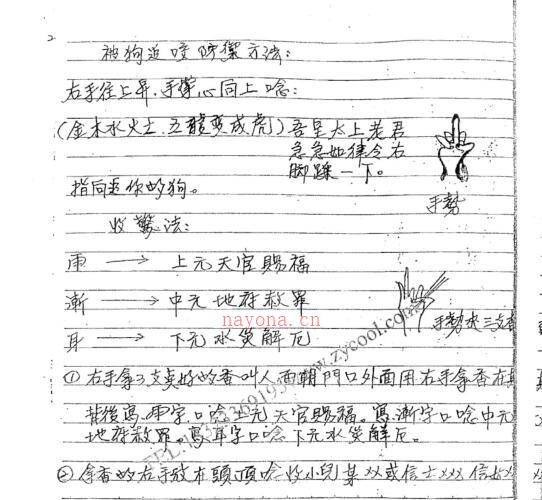 被狗追咬防禦方法：
右手往上昇．手掌心向上唸：
(金木水火土．五龍變成虎) 吾是太上老君
急急如律令右
脚踩一下。
手勢
指向追你的狗。
收驚法：
雨 → 上元天官賜福
漸 → 中元地府赦罪
耳 → 下元水災解厄
手勢夾三支香
①右手拿3支點好的香叫人面朝門口外面用右手拿香在其
背後寫．雨字口唸上元天官賜福。寫．漸字口唸中元
地府赦罪。寫耳字口唸下元水災解厄。
②拿香的右手放在頭頂唸收小兒某XX或信士XXX信女XX
nayona.cn
www.zycool.com